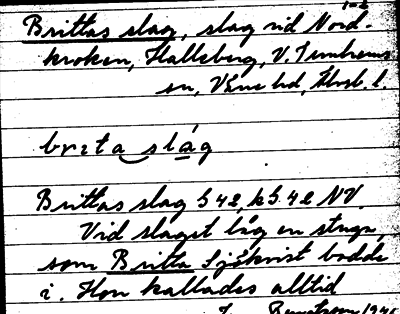 Brittas slag, slag vid Nord-
kroken, Halleberg, V. Tunhems
sn, Väne hd, Älvsb. l.
brita slåg
Brittas slag 542, k 5.42 NV.
Vid slaget låg en stuga,
som Britta Sjökvist bodde
i. Hon kallades alltid
1940